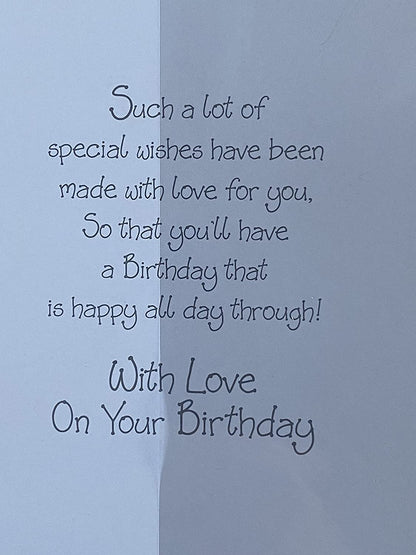 Such a lot of
special wishes have been
made with love for you,
So that you'll have
a Birthday that
is happy all day through!
With Love
On Your Birthday